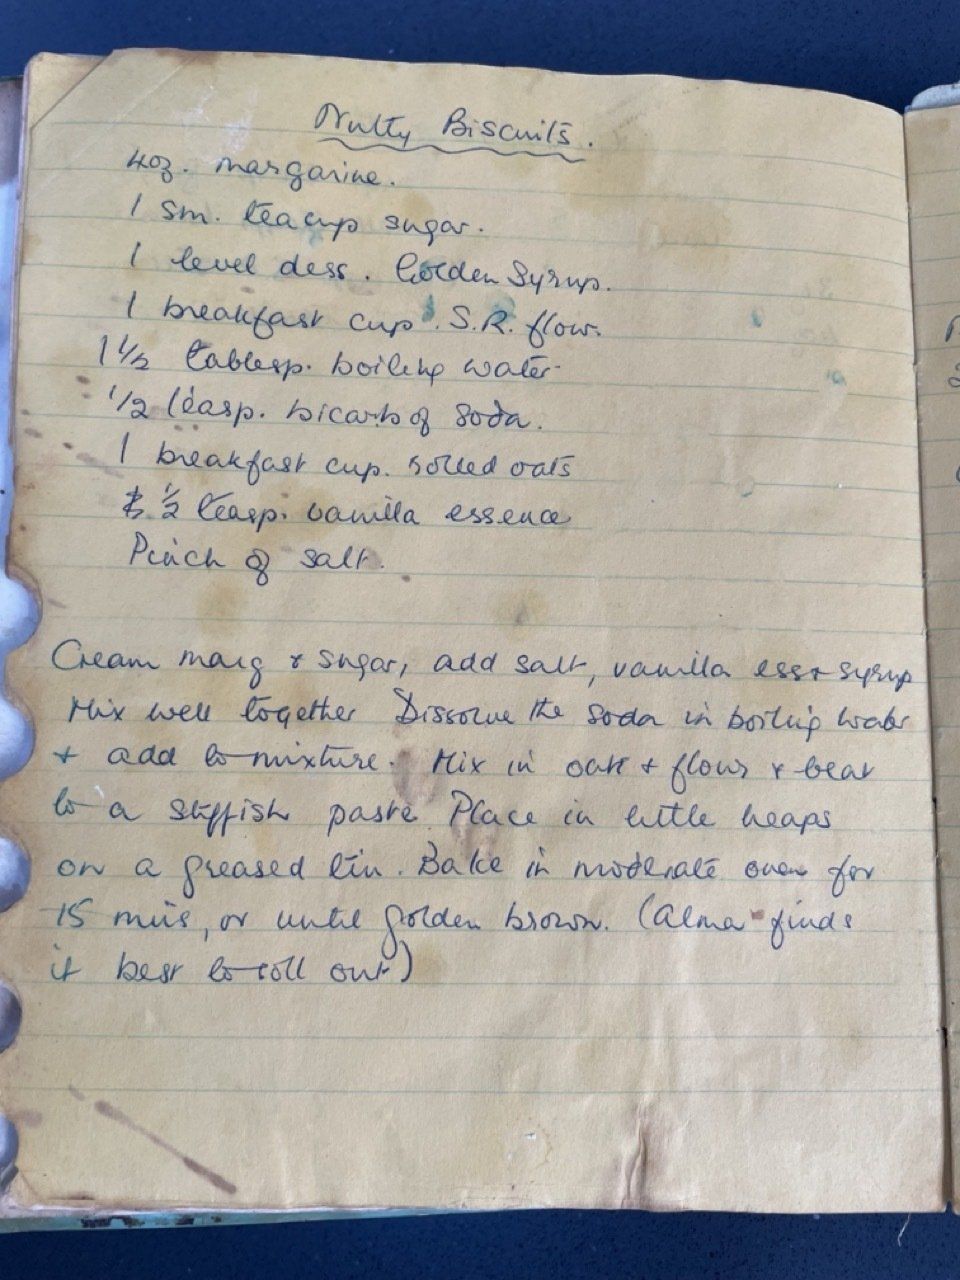 Nutty Biscuits.
4oz. margarine.
1 sm. teacup sugar.
1 level dess. Golden Syrup.
1 breakfast cup. S.R. flour.
1 1/2 tablesp. boiling water
1/2 teasp. bicarb of soda.
1 breakfast cup. rolled oats
1/2 teasp. vanilla essence
Pinch of salt.
Cream marg & sugar, add salt, vanilla ess & syrup
Mix well together Dissolve the soda in boiling water
+ add to mixture. Mix in oats + flour & beat
to a stiffish paste. Place in little heaps
on a greased tin. Bake in moderate oven for
15 mins, or until golden brown. (Alma finds
it best to roll out)